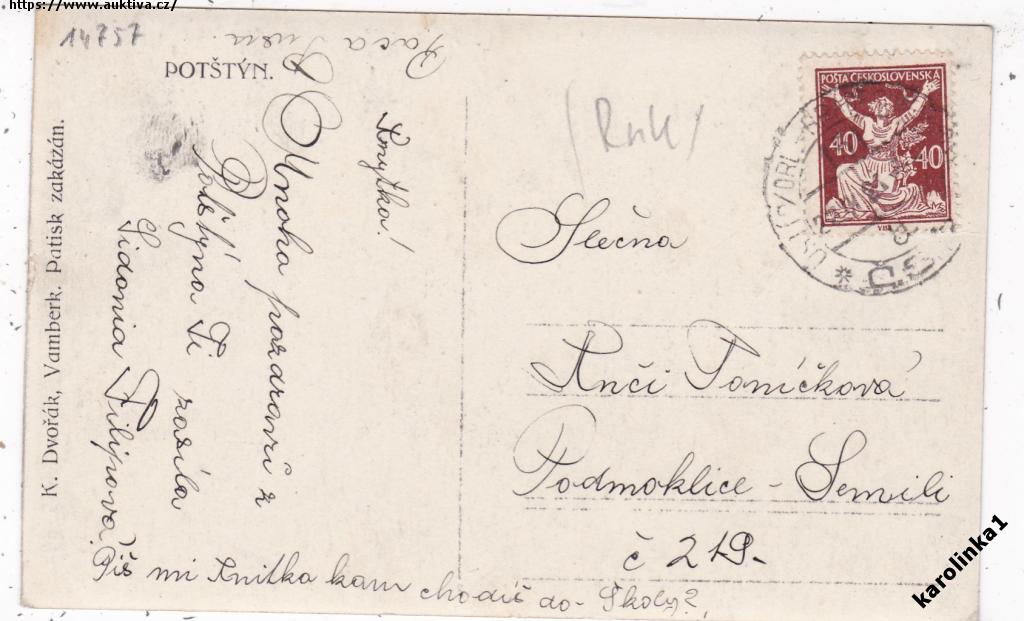 https://www.auktiva.cz/
14757
POTŠTÝN.
K. Dvořák, Vamberk. Patisk zakázán.
Mnoho pozdravů z
Potštýna Ti zasílá
Sidonia Filipová
Piš mi Anitka kam chodíš do Školy?
(Ruk)
POŠTA ČESKOSLOVENSKÁ
40 40
Slečna
Anči Toníčková
Podmoklice - Semili
č 219.
karolinka1